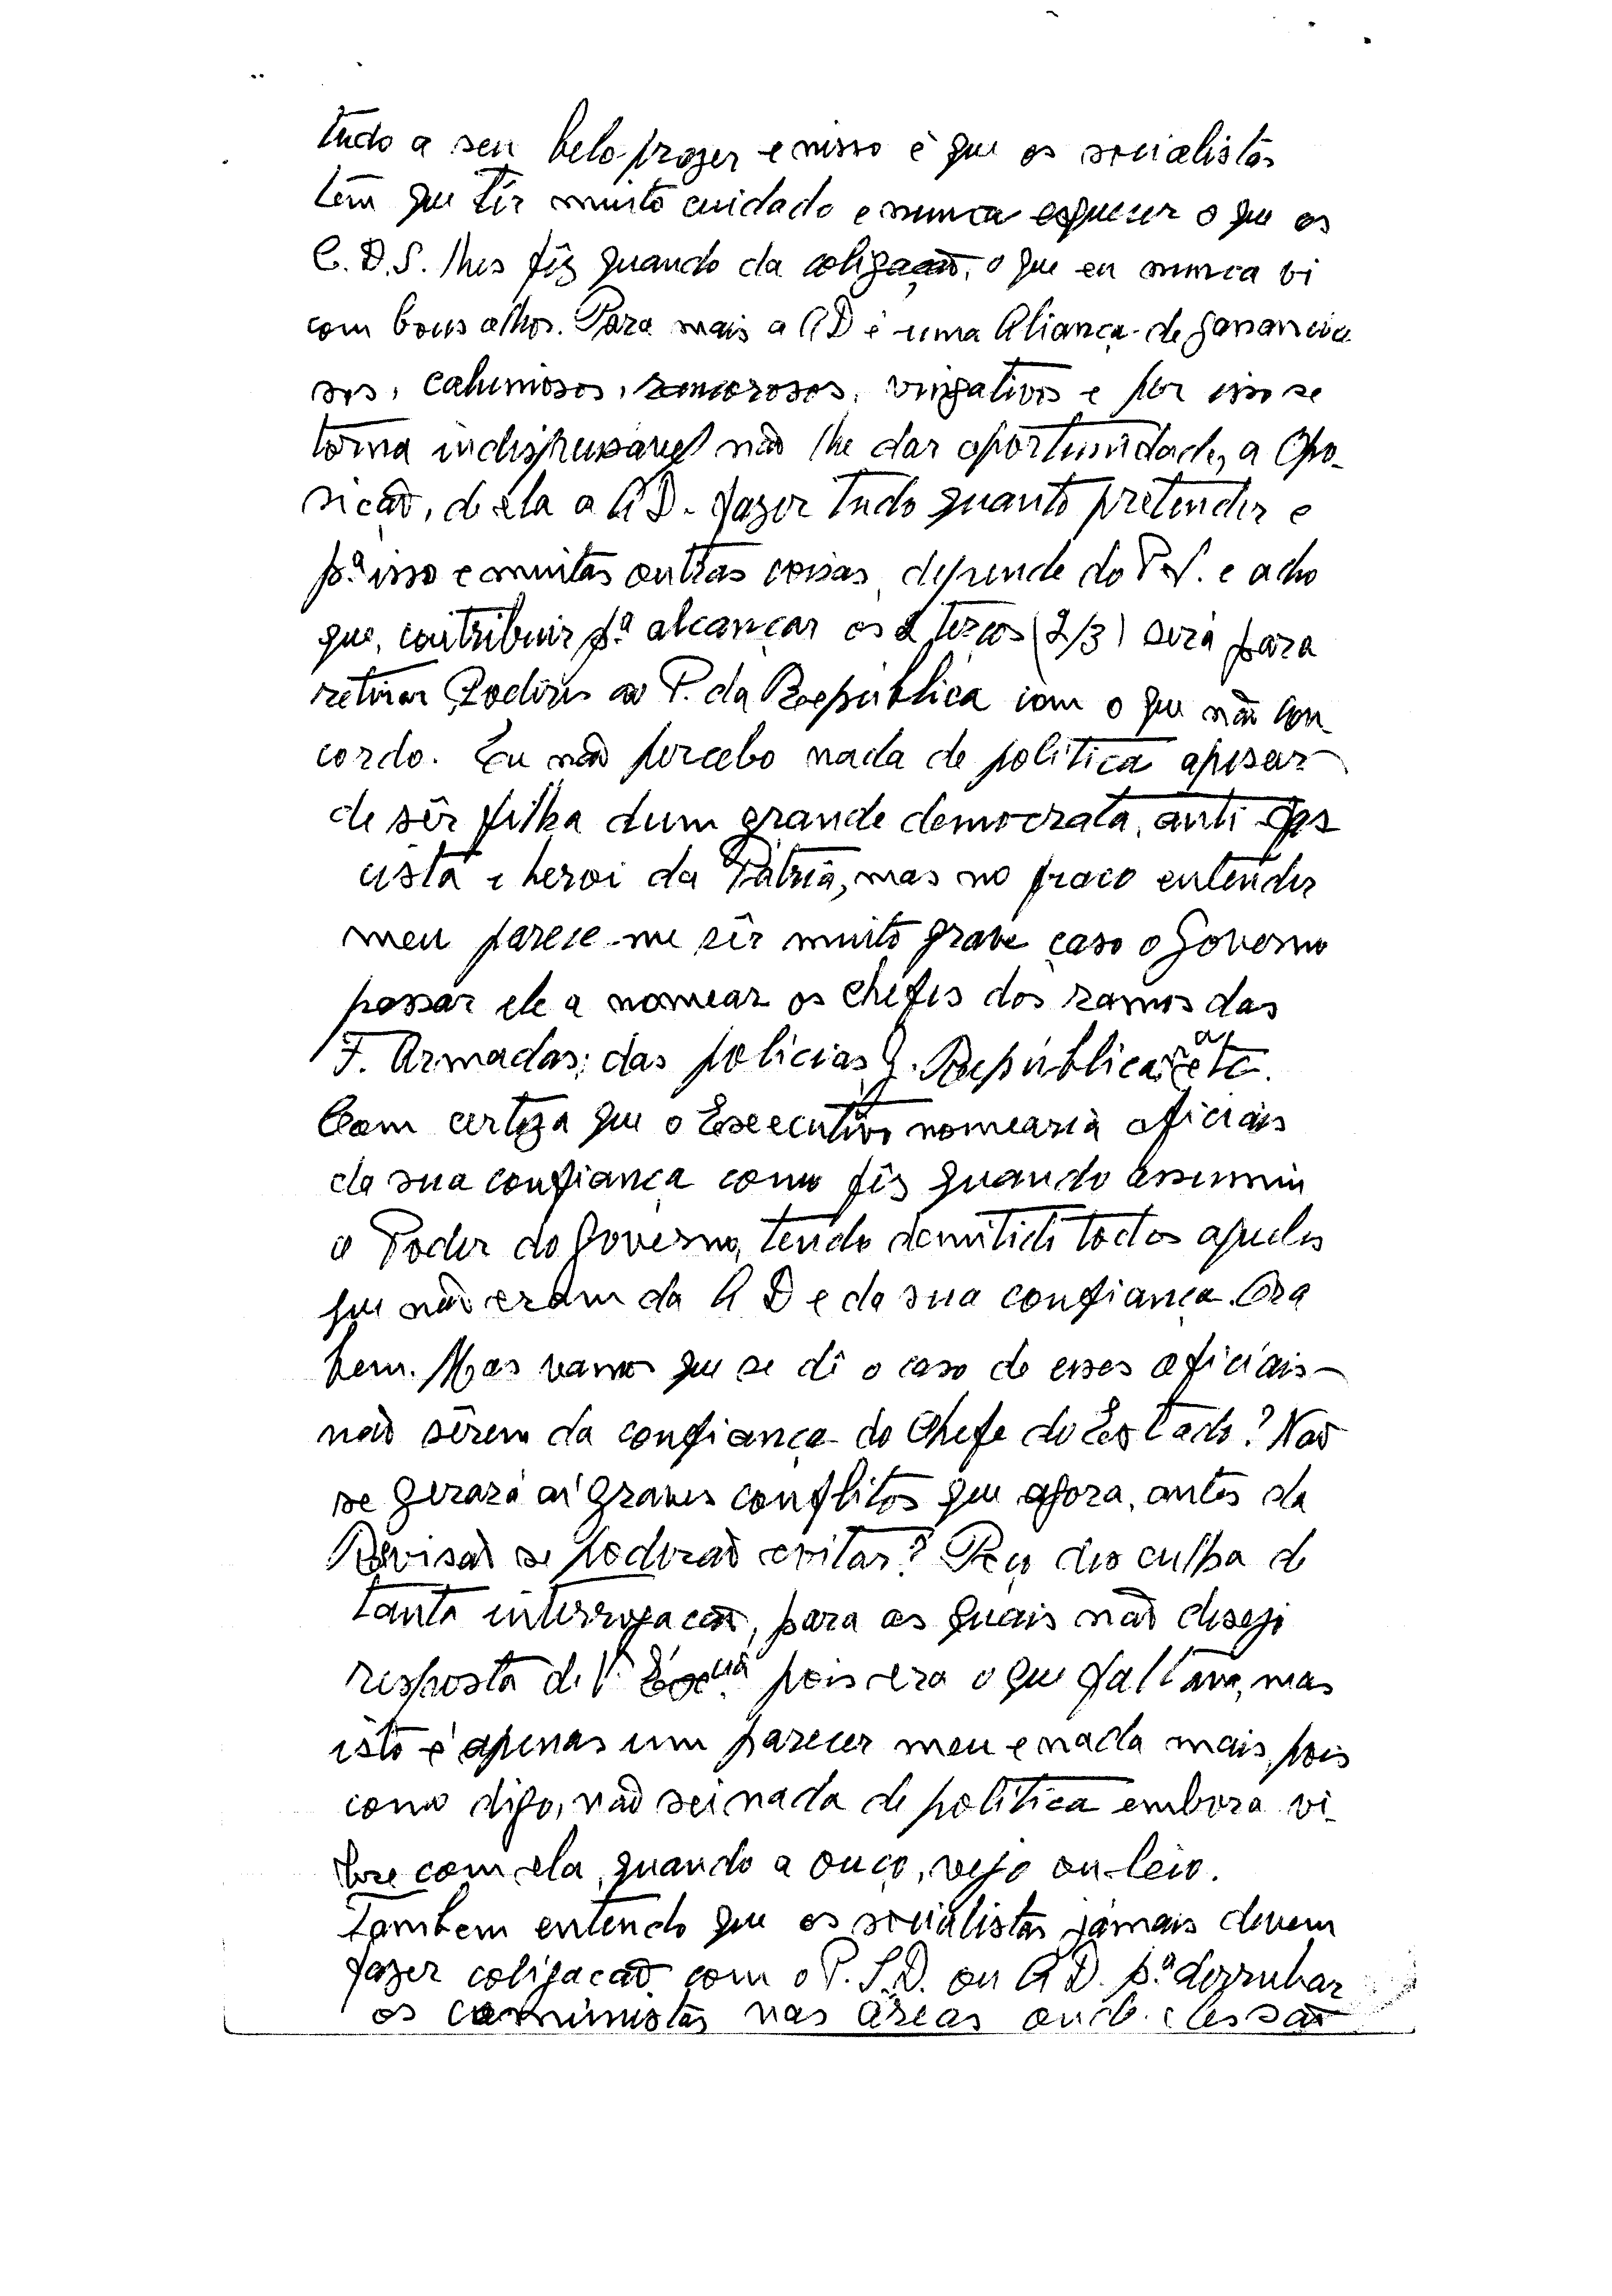 tudo a seu belo-prazer e nisso é que os socialistas
têm que têr muito cuidado e nunca esquecer o que os
C.D.S. lhes fêz quando da coligação, o que eu nunca vi
com bons olhos. Para mais a AD é uma Aliança de ganancio
sos, caluniosos, rancorosos, vingativos e por isso se
torna indispensavel não lhe dar oportunidade, a Opo-
sição, de ela a AD. fazer tudo quanto pretender e
pª isso e muitas outras coisas, depende do P.S. e acho
que, contribuir pª alcançar os 2 terços (2/3) será para
retirar Poderes ao P. da República com o que não con-
cordo. Eu não percebo nada de politica apesar
de sêr filha dum grande democrata, anti-fas
cista e heroi da Pátria, mas no fraco entender
meu parece-me sêr muito grave caso o Governo
passar ele a nomear os chefes dos ramos das
F. Armadas; das policias G. Républicana etc.
Com certeza que o Executivo nomearia oficiais
da sua confiança como fêz quando assumiu
o Poder do Governo, tendo demitido todos aqueles
que não eram da AD e da sua confiança. Ora
bem. Mas vamos que se dê o caso de esses oficiais
não sêrem da confiança do Chefe do Estado? Não
se gerará aí graves conflitos que agora, antes da
Revisão se poderão evitar? Peço desculpa de
tanta interrogação, para as quais não desejo
resposta de V. Excia. pois era o que faltava, mas
isto é apenas um parecer meu e nada mais, pois
como digo, não sei nada de politica embora vi-
bre com ela, quando a ouço, vejo ou leio.
Tambem entendo que os socialistas jámais devem
fazer coligação com o P.S.D. ou AD. pª derrubar
os comunistas nas áreas onde eles são